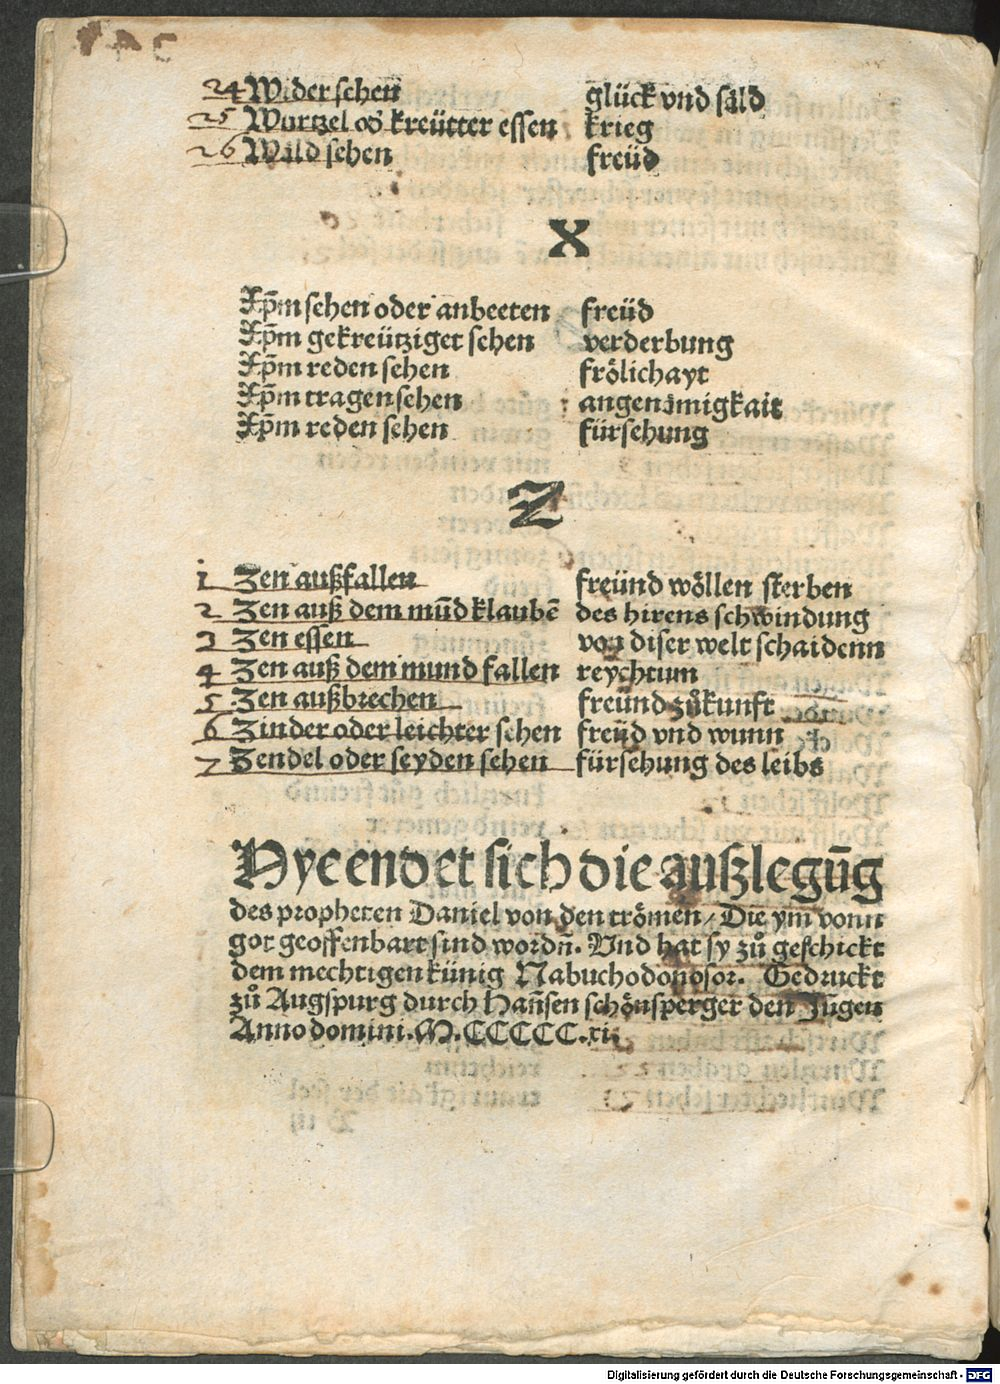 24 Wider sehen glück vnd säld
25 Wurtzel oď kreütter essen krieg
26 Wild sehen freüd
X
Xp̄m sehen oder anbeeten freüd
Xp̄m gekreütziget sehen verderbung
Xp̄m reden sehen frölichayt
Xp̄m tragen sehen angenämigkait
Xp̄m reden sehen fürsehung
Z
1 Zen außfallen freünd wöllen sterben
2 Zen auß dem mūd klaubē des hirens schwindung
3 Zen essen von diser welt schaidenn
4 Zen auß dem mund fallen reychtum
5 Zen außbrechen freünd zůkunft
6 Zinder oder leichter sehen freüd vnd wunn
7 Zendel oder seyden sehen fürsehung des leibs
Hye endet sich die außlegūg
des propheten Daniel von den trömen / Die ym vonn
got geoffenbart sind wordn̄. Vnd hat sy zů geschickt
dem mechtigen künig Nabuchodonosor. Gedruckt
zů Augspurg durch Han̄sen schönsperger den Jūgen
Anno domini. M. CCCCC. xi
Digitalisierung gefördert durch die Deutsche Forschungsgemeinschaft - DFG